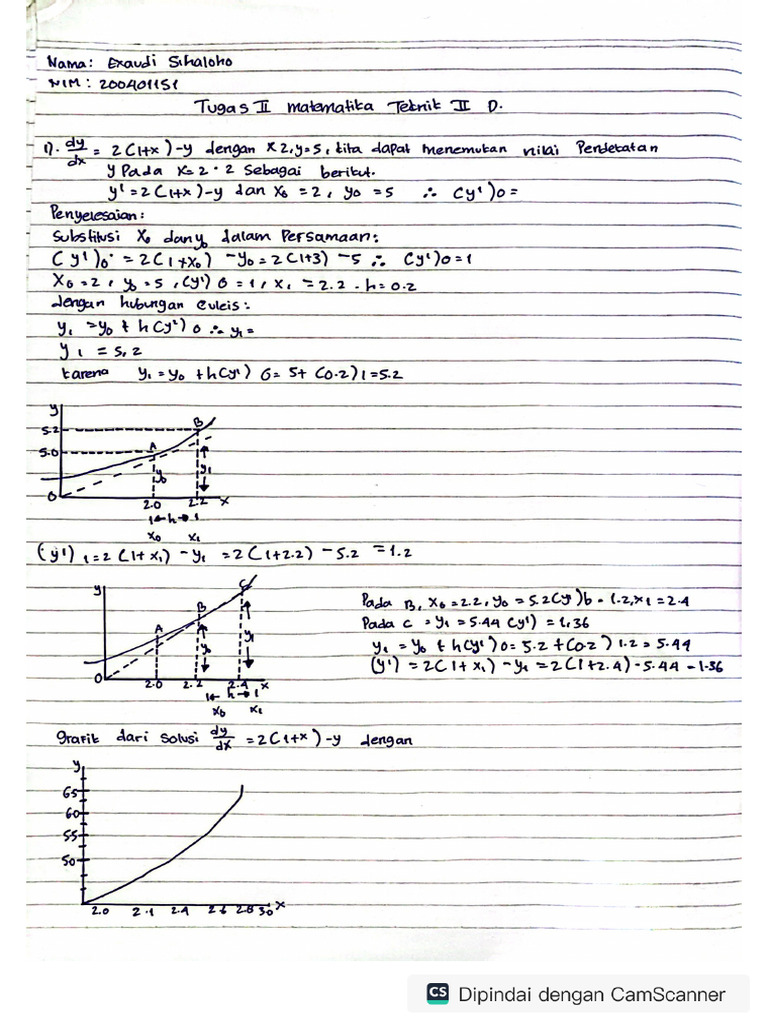 Nama: Exaudi Sihaloho
NIM: 200401151
Tugas II matematika Teknik II D.
1). dy/dx = 2(1+x)-y dengan x 2, y=5, kita dapat menemukan nilai Pendekatan
y Pada x=2.2 Sebagai berikut.
y'=2(1+x)-y dan x0 =2, y0 =5 ∴ (y')0=
Penyelesaian:
Substitusi X0 dan y0 dalam Persamaan:
(y')0 = 2(1+x0) - y0 = 2(1+3) - 5 ∴ (y')0=1
X0=2, y0=5, (y')0=1, x1 = 2.2 . h=0.2
dengan hubungan euleis:
y1 = y0 + h(y')0 ∴ y1=
y1 = 5,2
karena y1 = y0 + h(y') 0 = 5+ (0.2)1=5.2
y
5.2
5.0
0
A
B
y0
y1
2.0 2.2 x
h
x0 x1
(y')1=2(1+x1) - y1 = 2(1+2.2) - 5.2 = 1.2
y
0
A
B
C
y0
y1
2.0 2.2 2.4 x
h
x0 x1
Pada B, X0=2.2, y0 = 5.2(y')b = 1.2, x1 = 2.4
Pada C = y1 = 5.44 (y') = 1,36
y1 = y0 + h(y')0= 5.2 + (0.2) 1.2 = 5.44
(y') = 2(1+x1) - y1 = 2(1+2.4) - 5.44 - 1.36
grafik dari solusi dy/dx = 2(1+x)-y dengan
y
65
60
55
50
2.0 2.1 2.4 2.6 2.8 30 x
CS Dipindai dengan CamScanner